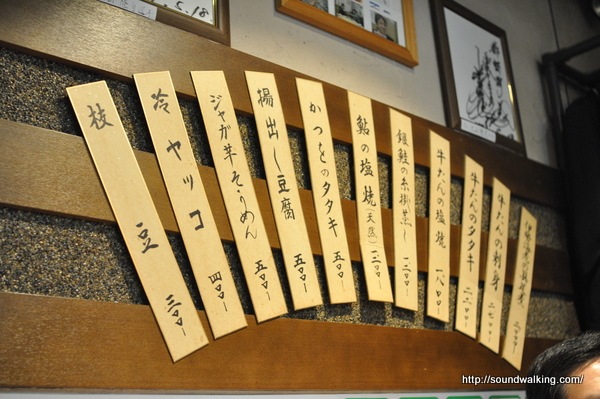 枝豆 三〇〇ー
冷ヤッコ 四〇〇ー
ジャガ芋そうめん 五〇〇ー
揚出し豆腐 五〇〇ー
かつをのタタキ 五〇〇ー
鮎の塩焼(天然) 一二〇〇ー
銀鮭の糸掛蒸し 一二〇〇ー
牛たんの塩焼 一八〇〇ー
牛たんのタタキ 二二〇〇ー
牛たんの刺身 二七〇〇ー
5.18
http://soundwalking.com/